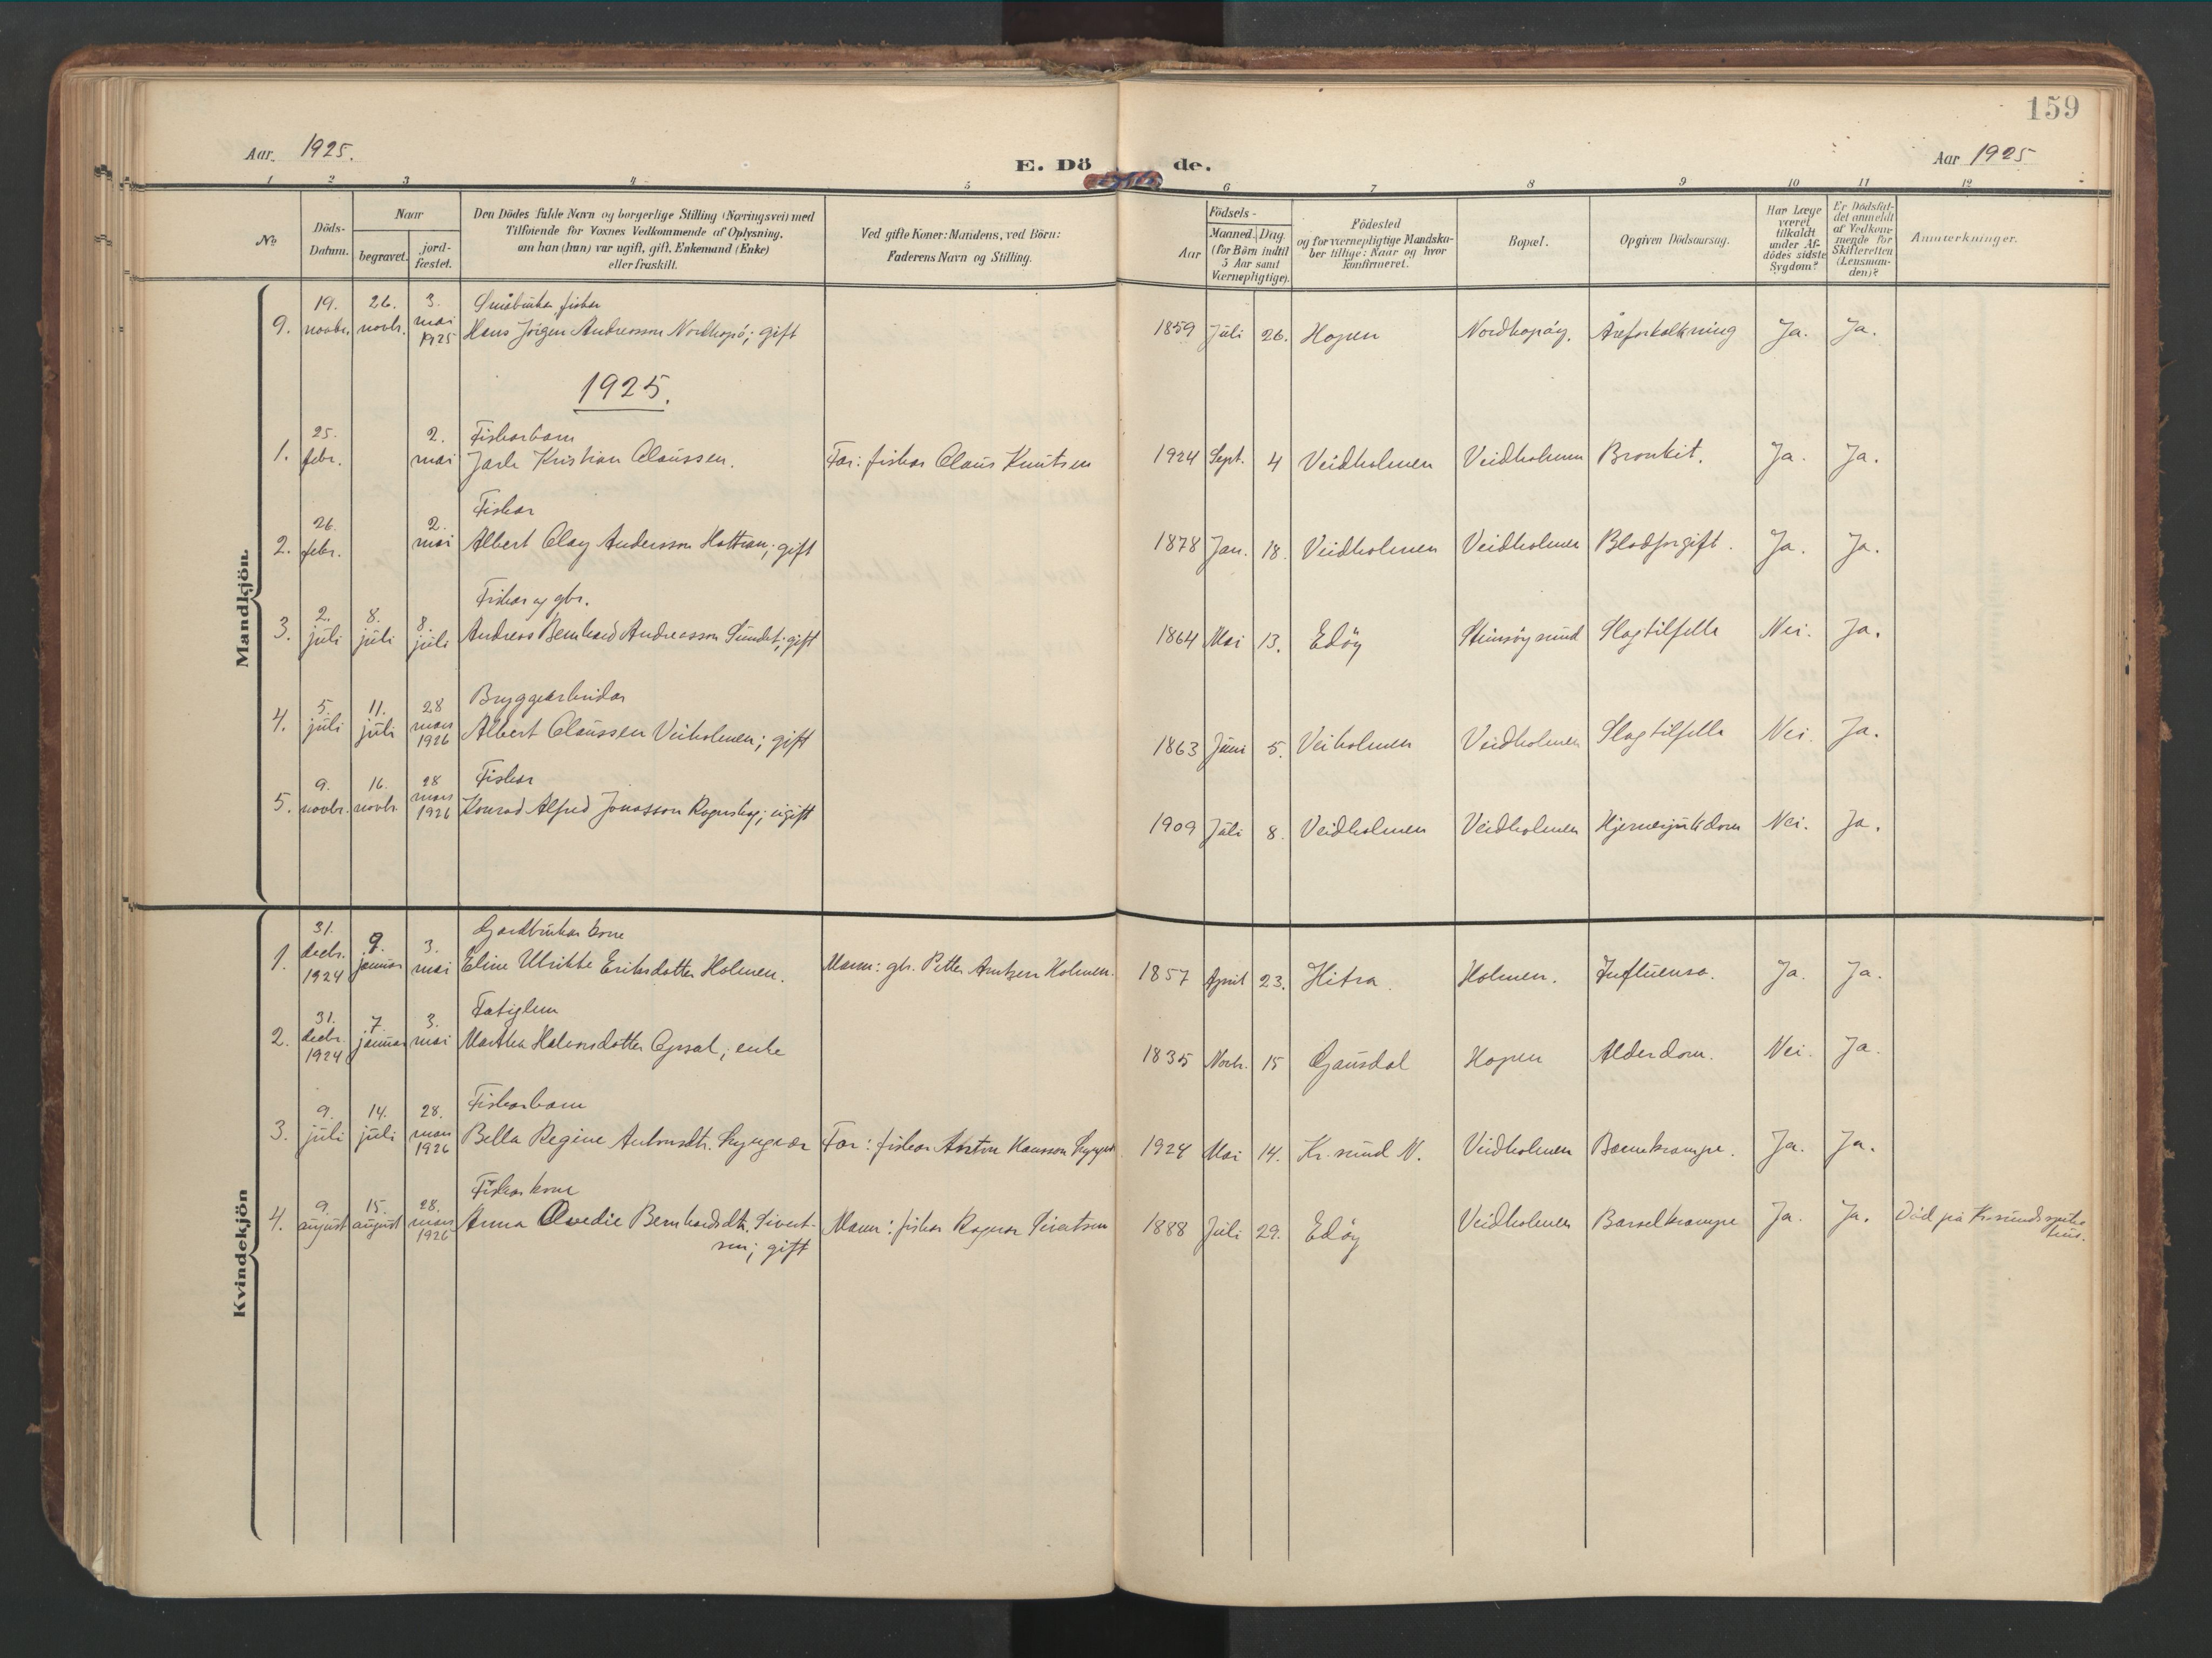 159
Aar. 1925.
E. Döde.
Aar 1925
1 2 3 4 5 6 7 8 9 10 11 12
No.
Döds-Datum.
Naar
begravet.
jord-fæstet.
Den Dödes fulde Navn og borgerlige Stilling (Næringsvei) med
Tilföiende for Voxnes Vedkommende af Oplysning,
om han (hun) var ugift, gift, Enkemand (Enke)
eller fraskilt.
Ved gifte Koner: Mandens, ved Börn:
Faderens Navn og Stilling.
Födsels-
Aar
Maaned. Dag.
(for Börn indtil
5 Aar samt
Værnepligtige).
Födested
og for værnepligtige Mandska-
ber tillige: Naar og hvor
konfirmeret.
Bopæl.
Opgiven Dödsaarsag.
Har Læge
været
tilkaldt
under Af-
dödes sidste
Sygdom?
Er Dödsfal-
det anmeldt
af Vedkom-
mende for
Skifteretten
(Lensman-
den)?
Anmærkninger.
Mandkjön.
9. 19. novbr. 26. novbr. 3. mai 1925 Småbrukar, fisker
Hans Jörgen Andreasson Nordhopö; gift 1859 Juli 26. Hopen Nordhopöy. Åreforkalkning Ja. Ja.
1925.
1. 25. febr. 2. mai Fiskarbarn
Jarle Kristian Claussen. Far: fiskar Claus Knutsen 1924 Sept. 4 Veidholmen Veidholmen Bronkit. Ja. Ja.
2. 26. febr. 2. mai Fiskar
Albert Olay Andersson; gift 1878 Jan. 18. Veidholmen Veidholmen Blodforgift. Ja. Ja.
3. 2. juli 8. juli 8. juli Fiskar og gbr.
Andreas Bernhard Andreasson Sundet; gift 1864 Mai 13. Edöy Steinsöysund Slagtilfelle Nei. Ja.
4. 5. juli 11. juli 28 mars 1926 Bryggearbeidar
Albert Claussen Veiholmen; gift 1863 Juni 5. Veiholmen Veidholmen Slagtilfelle Nei. Ja.
5. 9. novbr. 16. novbr. 28 mars 1926 Fiskar
Konrad Alfred Jonasson; ugift 1909 Juli 8. Veidholmen Veidholmen Hjernesjukdom Nei. Ja.
Kvindekjön
1. 31. decbr. 1924 9. januar 3. mai Gardbrukarkone
Eline Ulrikke Eriksdotter Holmen. Mann: gbr. Petter Arntzen Holmen. 1857 April 23. Hitra. Holmen. Influensa. Ja. Ja.
2. 31. decbr. 1924 7. januar 3. mai Fatiglem
Martha Halvorsdotter; enke 1835 Novbr. 15 Gausdal Hopen Alderdom. Nei. Ja.
3. 9. juli 14. juli 28. mars 1926 Fiskarbarn
Bella Regine Antonsdtr. Lyngvær Far: fiskar Anton Hansson 1924 Mai 14. Kr.sund N. Veidholmen Barnekrampe. Ja. Ja.
4. 9. august 15. august 28. mars 1926 Fiskarkone
Anna Ovedie Bernhardsdtr. Sivert-
sen; gift Mann: fiskar Ragnar Sivertsen 1888 Juli 29. Edöy Veidholmen Barselkrampe Ja. Ja. Död på Kr.sunds syke-
hus.